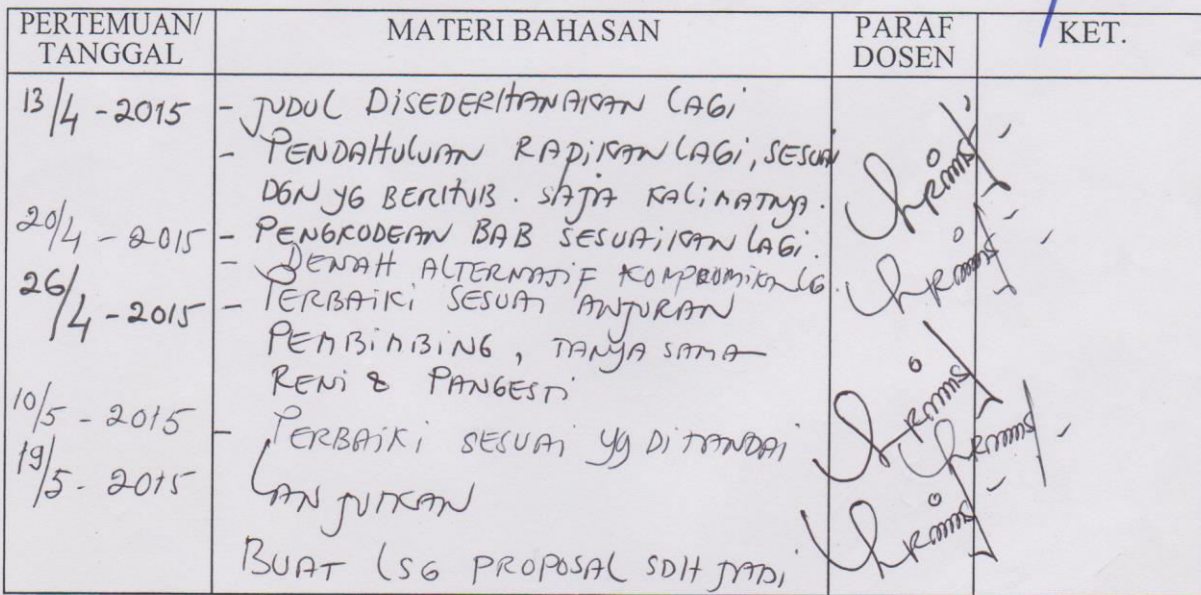 PERTEMUAN/ TANGGAL MATERI BAHASAN PARAF DOSEN KET.
13/4 - 2015 - JUDUL DISEDERHANAKAN LAGI
- PENDAHULUAN RAPIKAN LAGI, SESUAI
DGN YG BERITUB. SAJA KALIMATNYA.
20/4 - 2015 - PENGKODEAN BAB SESUAIKAN LAGI.
- DENAH ALTERNATIF KOMPROMIKN LG.
26/4 - 2015 - PERBAIKI SESUAI ANJURAN
PEMBIMBING, TANYA SAMA
RENI & PANGESTI
10/5 - 2015 - PERBAIKI SESUAI YG DITANDAI
19/5 - 2015 LANJUTKAN
BUAT LSG PROPOSAL SDH JADI